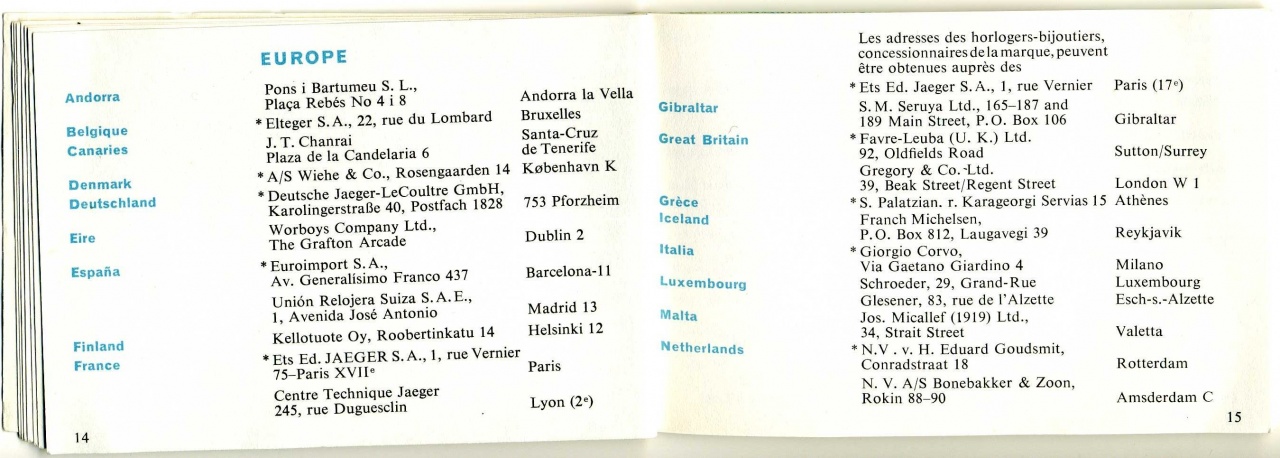 EUROPE
Andorra
Pons i Bartumeu S. L.,
Plaça Rebés No 4 i 8 Andorra la Vella
Belgique * Elteger S. A., 22, rue du Lombard Bruxelles
Canaries J. T. Chanrai Santa-Cruz
Plaza de la Candelaria 6 de Tenerife
Denmark * A/S Wiehe & Co., Rosengaarden 14 København K
Deutschland * Deutsche Jaeger-LeCoultre GmbH,
Karolingerstraße 40, Postfach 1828 753 Pforzheim
Eire Worboys Company Ltd.,
The Grafton Arcade Dublin 2
España * Euroimport S. A.,
Av. Generalísimo Franco 437 Barcelona-11
Unión Relojera Suiza S. A. E.,
1, Avenida José Antonio Madrid 13
Finland Kellotuote Oy, Roobertinkatu 14 Helsinki 12
France * Ets Ed. JAEGER S. A., 1, rue Vernier
75–Paris XVIIe Paris
Centre Technique Jaeger
245, rue Duguesclin Lyon (2e)
14
Les adresses des horlogers-bijoutiers,
concessionnaires de la marque, peuvent
être obtenues auprès des
* Ets Ed. Jaeger S. A., 1, rue Vernier Paris (17e)
Gibraltar S. M. Seruya Ltd., 165–187 and
189 Main Street, P. O. Box 106 Gibraltar
Great Britain * Favre-Leuba (U. K.) Ltd.
92, Oldfields Road Sutton/Surrey
Gregory & Co. Ltd.
39, Beak Street/Regent Street London W 1
Grèce * S. Palatzian. r. Karageorgi Servias 15 Athènes
Iceland Franch Michelsen,
P. O. Box 812, Laugavegi 39 Reykjavik
Italia * Giorgio Corvo,
Via Gaetano Giardino 4 Milano
Luxembourg Schroeder, 29, Grand-Rue Luxembourg
Glesener, 83, rue de l'Alzette Esch-s.-Alzette
Malta Jos. Micallef (1919) Ltd.,
34, Strait Street Valetta
Netherlands * N. V . v. H. Eduard Goudsmit,
Conradstraat 18 Rotterdam
N. V. A/S Bonebakker & Zoon,
Rokin 88–90 Amsderdam C
15